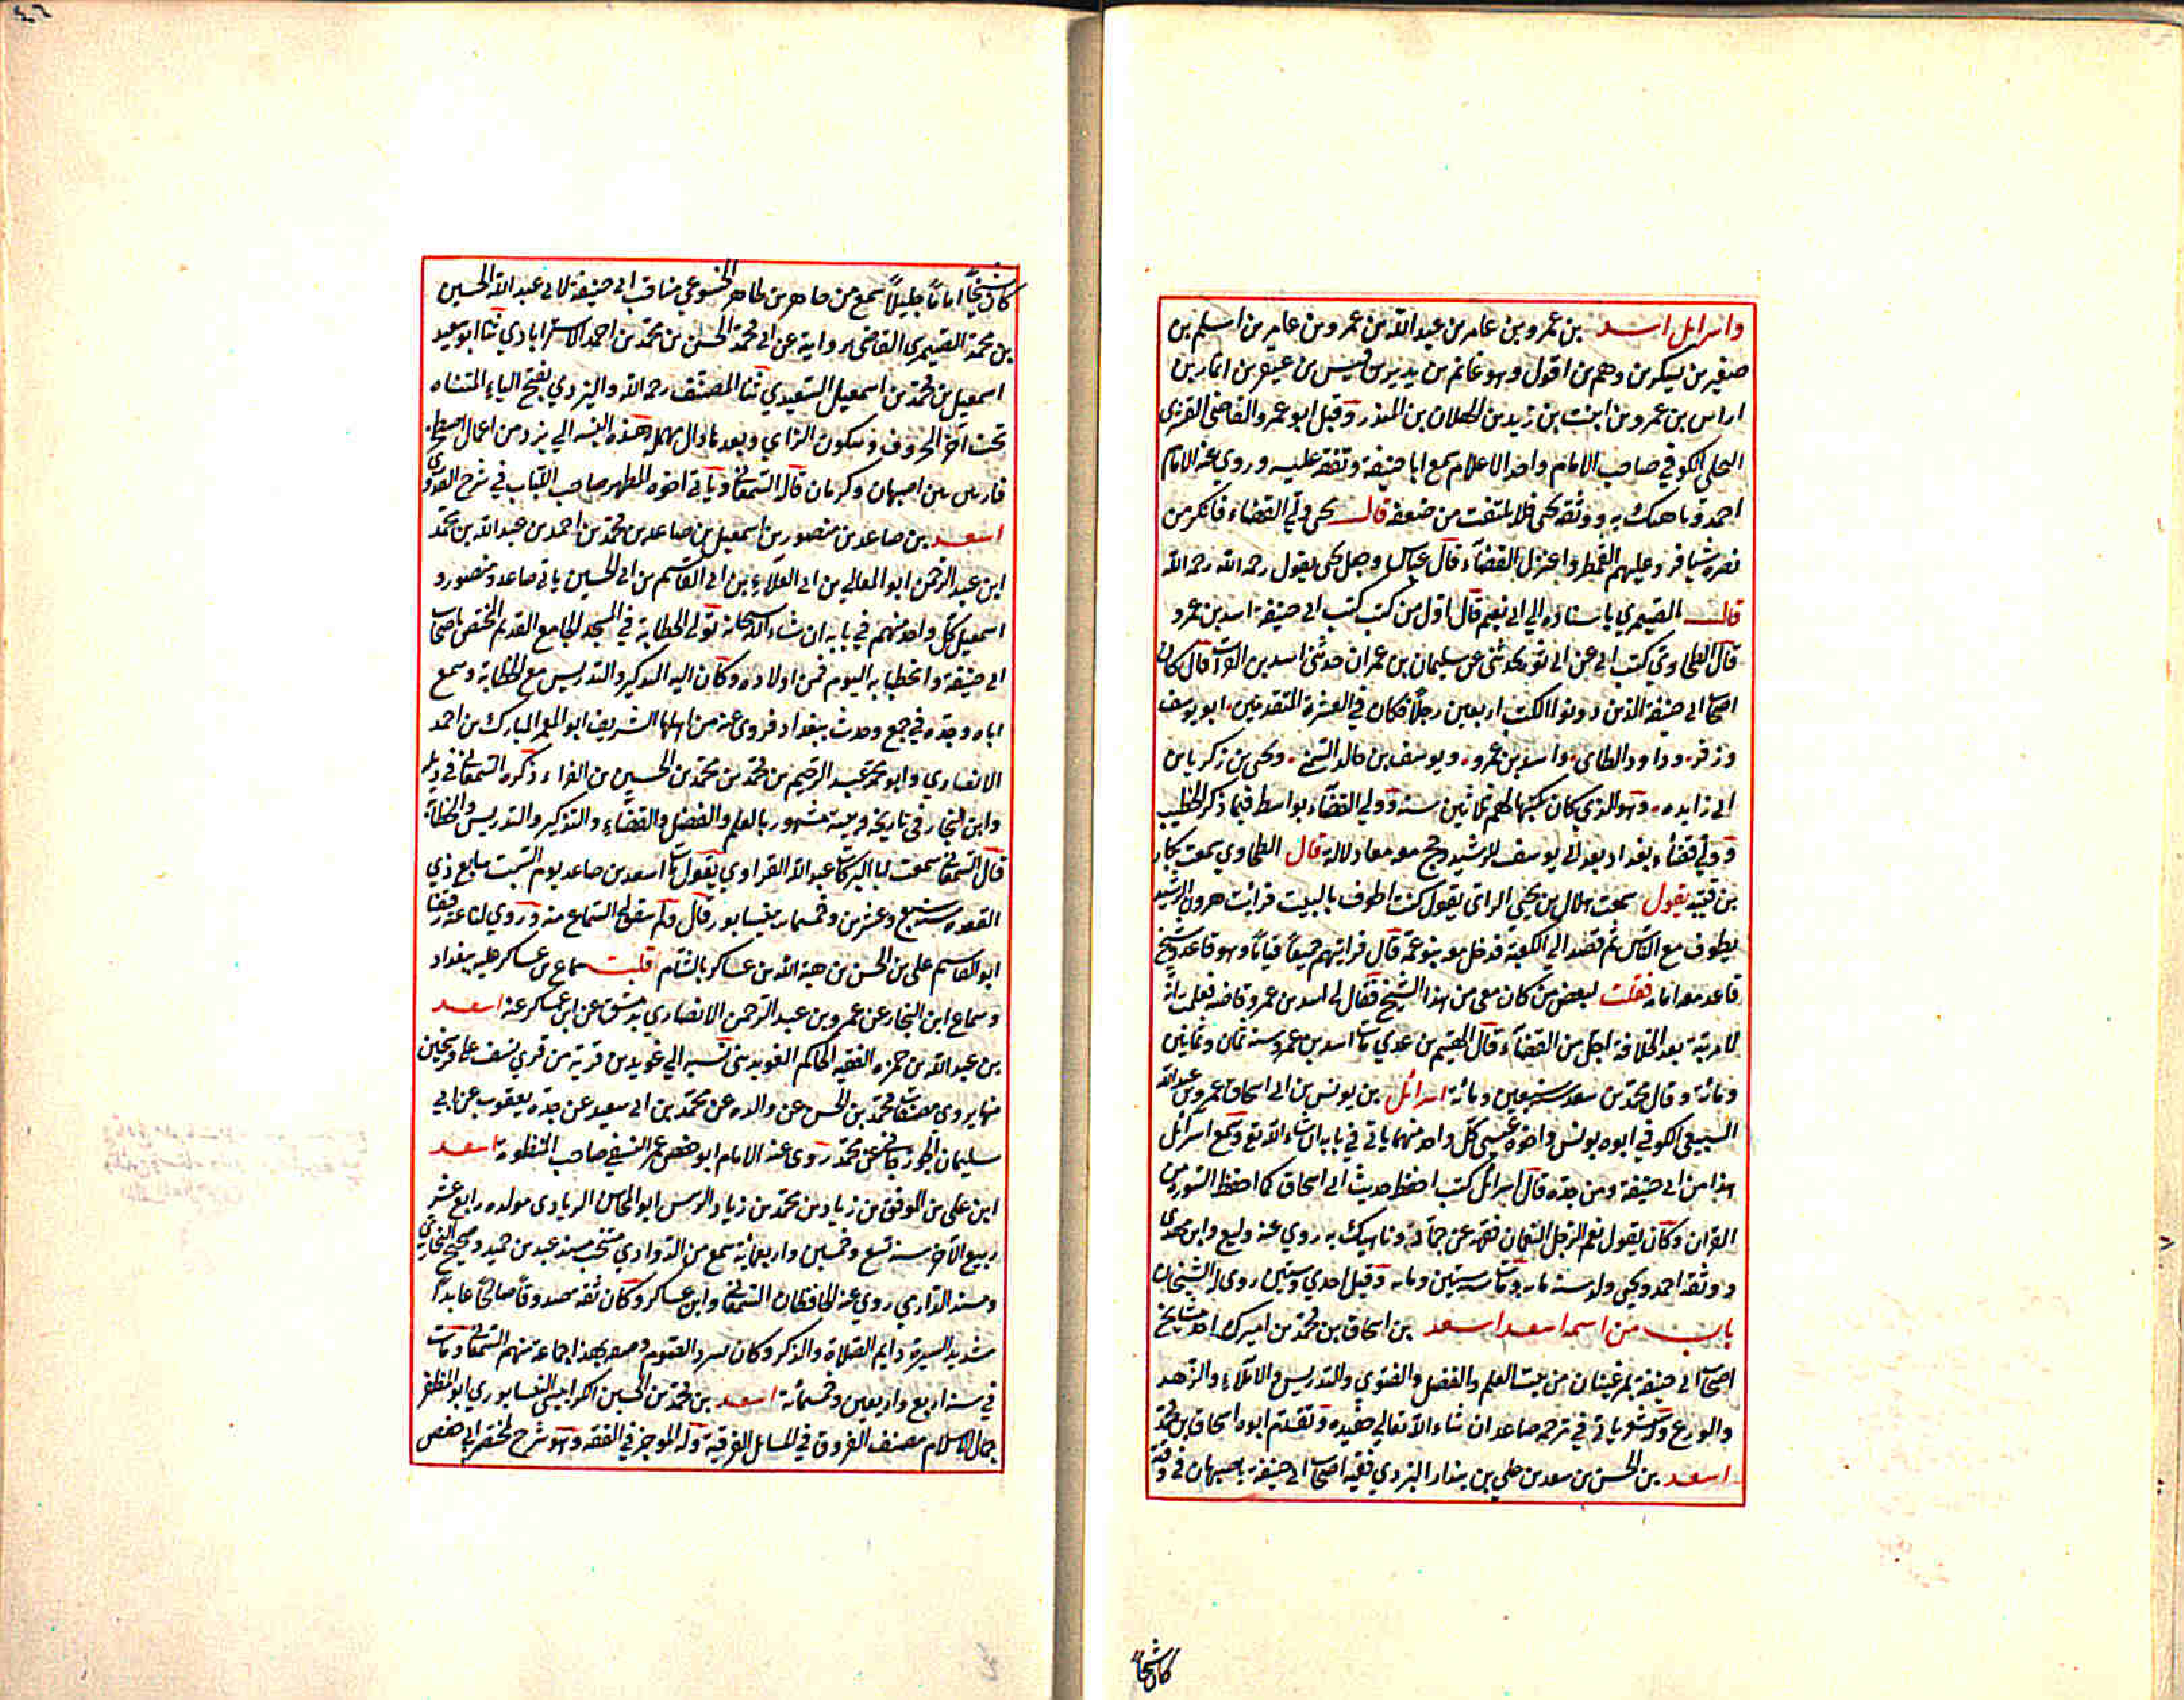 واسرائل اسد بن عمرو بن عامر بن عبد الله بن عمرو بن عامر بن اسلم بن
صغير بن يسكر بن دهم بن اقول وهو غانم بن بن قيس بن عبقر بن انمار بن
اراس بن عمرو بن بن زيد بن كهلان بن المنذر وقيل ابو عمرو القاضي القشيري
البجلي الكوفي صاحب الامام واحد الاعلام سمع ابا حنيفة وتفقه عليه وروي عنه الامام
احمد وناهيك به ووثقه يحيي فلا يلتفت من ضعفه قال يحيي ولي القضاء فانكر من
نصره شيأ فرد عليهم القمطر واعتزل القضاء قال عباس وجعل يحيي يقول رحمه الله رحمه الله
قال الصيمري باسناده الي ابي نعيم قال اول من كتب كتب ابي حنيفة اسد بن عمرو
قال الطحاوي كتب الي عن ابي ثور يحدثني عن سليمان بن عمران حدثني اسد بن الفرات قال كان
اصحاب ابي حنيفة الذين دونوا الكتب اربعين رجلا فكان في العشرة المتقدمين ابو يوسف
وزفر وداود الطاي واسد بن عمرو ويوسف بن خالد السمتي ويحيي بن زكريا بن
ابي زايده وهو الذي كان يكتبها لهم ثلاثين سنة وولي القضاء بواسط فيما ذكر الخطيب
وولي قضاء بغداد بعد ابي يوسف للرشيد وحج معه معادلا له قال الطحاوي سمعت بكار
بن قتيبه يقول سمعت هلال بن يحيي الراي يقول كنت اطوف بالبيت فرايت هرون الرشيد
يطوف مع الناس ثم قصد الي الكعبة فدخل معه بنو عمه قال فرايتهم جميعا قياما وهو قاعد وشيخ
قاعد معه امامه فقلت لبعض من كان معي من هذا الشيخ فقال لي اسد بن عمرو قاضيه فعلمت ان
لا مرتبة بعد الخلافة اجل من القضاء قال الهيثم بن عدي مات اسد بن عمرو سنة ثمان وثمانين
ومائة وقال محمد بن سعد سنة تسعين ومائة اسرائل بن يونس بن ابي اسحاق عمرو بن عبد الله
السبيعي الكوفي ابوه يونس واخوه عيسي كل واحد منهما ياتي في بابه ان شاء الله تع وسمع اسرائل
هذا من ابي حنيفة ومن جده قال اسرائل كنت احفظ حديث ابي اسحاق كما احفظ السورة من
القران وكان يقول نعم الرجل النعمان فقهه عن حماد وناهيك به روي عنه وكيع وابن مهدي
ووثقه احمد ويحيي ولد سنة مايه ومات سنة ستين ومايه وقيل احدي وستين روي له الشيخان
باب من اسمه اسعد اسعد بن اسحاق بن محمد بن اميرك احد مشايخ
اصحاب ابي حنيفة بمرغينان من بيت العلم والفضل والفتوي والتدريس والاملاء والزهد
والورع ياتي في ترجمة صاعد ان شاء الله تعالي حفيده وتقدم ابوه اسحاق بن محمد
اسعد بن الحسن بن سعد بن علي بن بندار اليزدي فقيه اصحاب ابي حنيفة باصبهان في وقته
كان شيخا
كان شيخا اماما جليلا سمع من طاهر بن طاهر الخشوعي مناقب ابي حنيفة لابي عبد الله الحسين
بن محمد الصيمري القاضي بروايته عن ابي محمد الحسن بن محمد بن احمد الاستراباذي ثنا ابو سعيد
اسمعيل بن محمد بن اسمعيل السعيدي ثنا المصنف رحمه الله واليزدي بفتح الياء المثناه
تحت آخر الحروف وسكون الزاي وبعدها دال مهمله هذه النسبة الي يزد من اعمال اصطخر
فارس بين اصبهان وكرمان قاله السمعاني وياتي اخوه المطهر صاحب اللباب في شرح القدوري
اسعد بن صاعد بن منصور بن اسمعيل بن صاعد بن محمد بن احمد بن عبد الله بن محمد
ابن عبد الرحمن ابو المعالي بن ابي العلاء بن ابي القاسم بن ابي الحسين ياتي صاعد ومنصور و
اسمعيل كل واحد منهم في بابه ان شاء الله سبحانه تولي الخطابة في المسجد الجامع القديم المختص باصحاب
ابي حنيفة والخطابه اليوم في اولاده وكان اليه التذكير والتدريس مع الخطابة وسمع
اباه وجده في جمع وحدث ببغداد فروي عنه من اهلها الشريف ابو المعمر المبارك بن احمد
الانصاري وابو محمد عبد الرحيم بن محمد بن محمد بن الحسين بن الفراء ذكره السمعاني في ذيله
وابن النجار في تاريخه وبيته مشهور بالعلم والفضل والقضاء والتذكير والتدريس والخطابة
قال السمعاني سمعت ابا البركات عبد الله الفراوي يقول مات اسعد بن صاعد يوم السبت سابع ذي
القعده سنة سبع وعشرين وخمسمايه بنيسابور قال ولم يتفق لي السماع منه وروي لنا عنه رفيقنا
ابو القاسم علي بن الحسن بن هبة الله بن عساكر بالشام قلت سماع بن عساكر عليه ببغداد
وسماع ابن النجار عن عمرو بن عبد الرحمن الانصاري بدمشق عن ابن عساكر عنه اسعد
بن عبد الله بن حمزه الفقيه الحاكم الغوبديني نسبه الي غوبدين قرية من قري نسف علي فرسخين
منها يروي مصنفات محمد بن الحسن عن والده عن محمد بن ابي سعيد عن جده يعقوب عن ابي
سليمان الجوزجاني عن محمد روي عنه الامام ابو حفص عمر النسفي صاحب المنظومة اسعد
ابن علي بن الموفق بن زياد بن محمد بن زياد الريس ابو المحاسن الزيادي مولده رابع عشر
ربيع الآخر سنة تسع وخمسين واربعمائة سمع من الداودي منتخب مسند عبد بن حميد وصحيح البخاري
ومسند الدارمي روي عنه الحافظان السمعاني وابن عساكر وكان ثقه صدوقا صالحا عابدا
شديد السيرة دايم الصلاة والذكر وكان يسرد الصوم وصفه بهذا جماعة منهم السمعاني ومات
في سنة اربع واربعين وخمسمائة اسعد بن محمد بن الحسين الكرابيسي النيسابوري ابو المظفر
جمال الاسلام مصنف الفروق في المسايل الفرقية وله الموجز في الفقه وهو شرح لمختصر ابي حفص